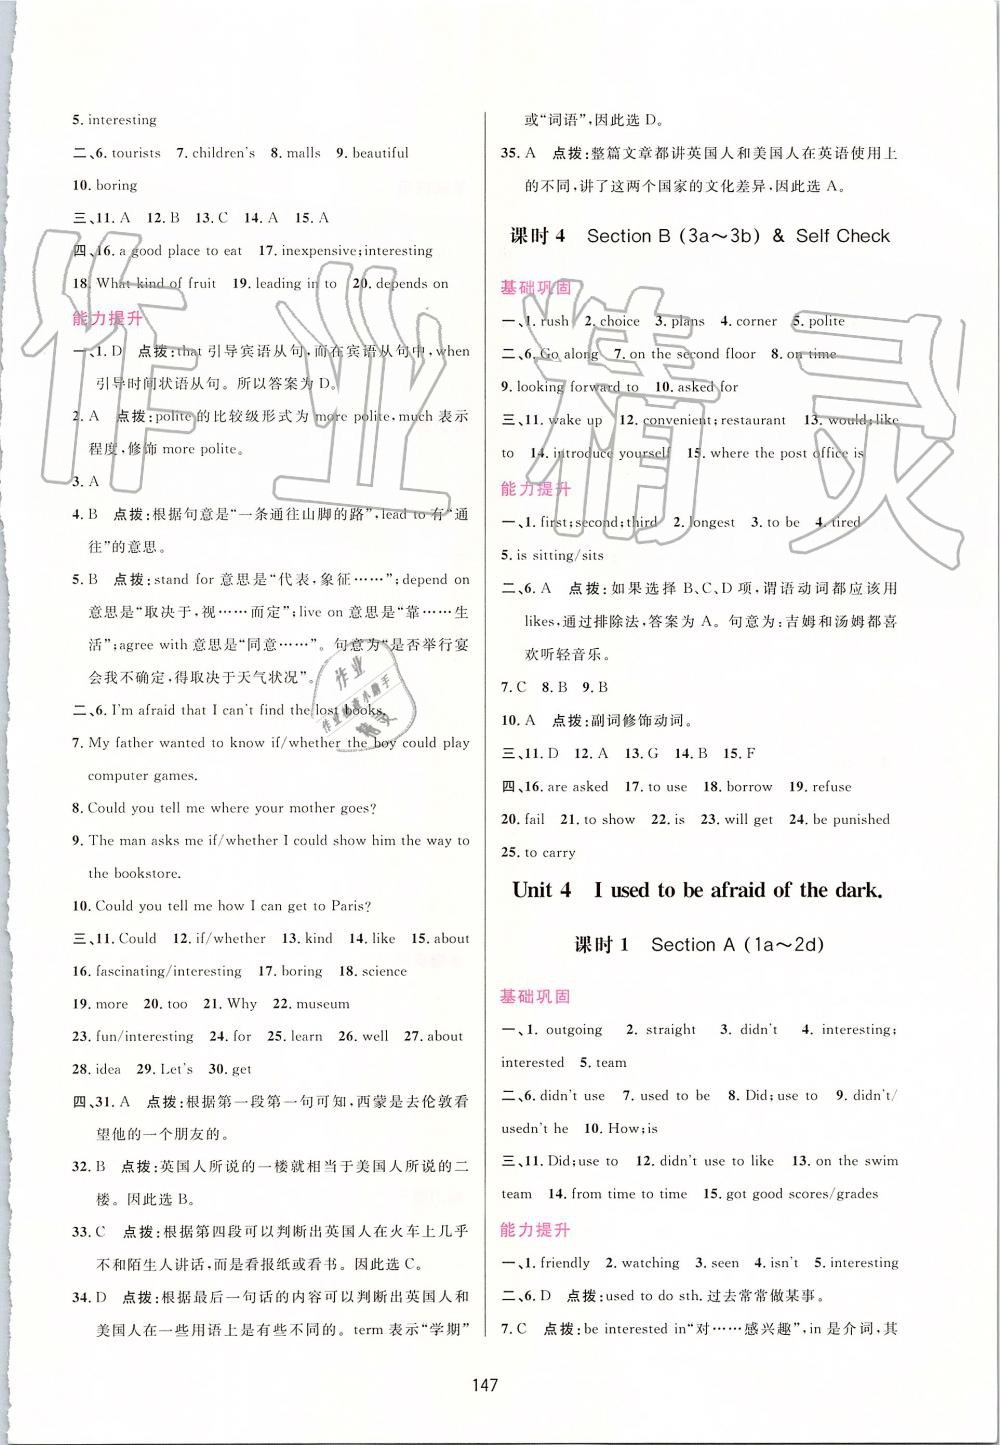 5. interesting
二、6. tourists 7. children's 8. malls 9. beautiful
10. boring
三、11. A 12. B 13. C 14. A 15. A
四、16. a good place to eat 17. inexpensive;interesting
18. What kind of fruit 19. leading in to 20. depends on
能力提升
一、1. D 点拨:that 引导宾语从句,而在宾语从句中,when
引导时间状语从句。所以答案为 D。
2. A 点拨:polite 的比较级形式为 more polite,much 表示
程度,修饰 more polite。
3. A
4. B 点拨:根据句意是“一条通往山脚的路”,lead to 有“通
往”的意思。
5. B 点拨:stand for 意思是“代表,象征……”;depend on
意思是“取决于,视……而定”;live on 意思是“靠……生
活”;agree with 意思是“同意……”。句意为“是否举行宴
会我不确定,得取决于天气状况”。
二、6. I'm afraid that I can't find the lost books.
7. My father wanted to know if/whether the boy could play
computer games.
8. Could you tell me where your mother goes?
9. The man asks me if/whether I could show him the way to
the bookstore.
10. Could you tell me how I can get to Paris?
三、11. Could 12. if/whether 13. kind 14. like 15. about
16. fascinating/interesting 17. boring 18. science
19. more 20. too 21. Why 22. museum
23. fun/interesting 24. for 25. learn 26. well 27. about
28. idea 29. Let's 30. get
四、31. A 点拨:根据第一段第一句可知,西蒙是去伦敦看
望他的一个朋友的。
32. B 点拨:英国人所说的一楼就相当于美国人所说的二
楼。因此选 B。
33. C 点拨:根据第四段可以判断出英国人在火车上几乎
不和陌生人讲话,而是看报纸或看书。因此选 C。
34. D 点拨:根据最后一句话的内容可以判断出英国人和
美国人在一些用语上是有些不同的。term 表示“学期”
或“词语”,因此选 D。
35. A 点拨:整篇文章都讲英国人和美国人在英语使用上
的不同,讲了这两个国家的文化差异,因此选 A。
课时 4 Section B (3a～3b) & Self Check
基础巩固
一、1. rush 2. choice 3. plans 4. corner 5. polite
二、6. Go along 7. on the second floor 8. on time
9. looking forward to 10. asked for
三、11. wake up 12. convenient;restaurant 13. would;like
to 14. introduce yourself 15. where the post office is
能力提升
一、1. first;second;third 2. longest 3. to be 4. tired
5. is sitting/sits
二、6. A 点拨:如果选择 B、C、D 项,谓语动词都应该用
likes,通过排除法,答案为 A。句意为:吉姆和汤姆都喜
欢听轻音乐。
7. C 8. B 9. B
10. A 点拨:副词修饰动词。
三、11. D 12. A 13. G 14. B 15. F
四、16. are asked 17. to use 18. borrow 19. refuse
20. fail 21. to show 22. is 23. will get 24. be punished
25. to carry
Unit 4 I used to be afraid of the dark.
课时 1 Section A (1a～2d)
基础巩固
一、1. outgoing 2. straight 3. didn't 4. interesting;
interested 5. team
二、6. didn't use 7. used to be 8. Did;use to 9. didn't/
usedn't he 10. How;is
三、11. Did;use to 12. didn't use to like 13. on the swim
team 14. from time to time 15. got good scores/grades
能力提升
一、1. friendly 2. watching 3. seen 4. isn't 5. interesting
二、6. D 点拨:used to do sth. 过去常常做某事。
7. C 点拨:be interested in“对……感兴趣”,in 是介词,其
147
作业精灵